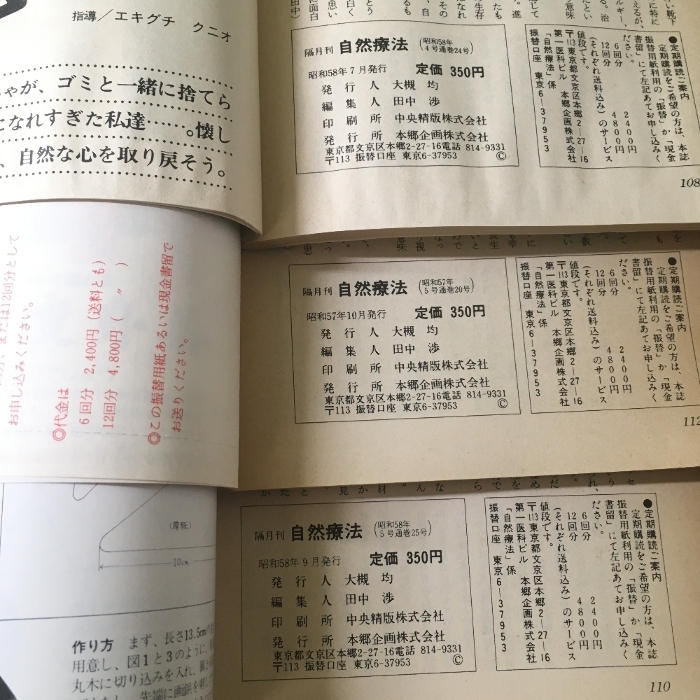 指導／エキグチ クニオ
ゃが、ゴミと一緒に捨てら
になれすぎた私達……。懐し
、自然な心を取り戻そう。
隔月刊 自然療法 (昭和58年 4号通巻24号)
昭和58年7月発行 定価 350円
発行人 大槻 均
編集人 田中 渉
印刷所 中央精版株式会社
発行所 本郷企画株式会社
東京都文京区本郷2-27-16電話 814-9331
〒113 振替口座 東京6-37953 Ⓒ
●定期購読ご案内
定期購読をご希望の方は、本誌
振替用紙利用の「振替」か「現金
書留」にて左記あてお申し込みく
ださい。
6回分 2400円
12回分 4800円
(それぞれ送料込み)のサービス
値段です。
〒113東京都文京区本郷2―27―16
第一医科ビル 本郷企画株式会社
「自然療法」係
振替口座 東京6―37953
108
お申し込みください。
◎代金は
6回分 2,400円(送料とも)
12回分 4,800円( 〃 )
◎この振替用紙あるいは現金書留で
お送りください。
隔月刊 自然療法 (昭和57年 5号通巻20号)
昭和57年10月発行 定価 350円
発行人 大槻 均
編集人 田中 渉
印刷所 中央精版株式会社
発行所 本郷企画株式会社
東京都文京区本郷2-27-16電話 814-9331
〒113 振替口座 東京6-37953 Ⓒ
●定期購読ご案内
定期購読をご希望の方は、本誌
振替用紙利用の「振替」か「現金
書留」にて左記あてお申し込みく
ださい。
6回分 2400円
12回分 4800円
(それぞれ送料込み)のサービス
値段です。
〒113東京都文京区本郷2―27―16
第一医科ビル 本郷企画株式会社
「自然療法」係
振替口座 東京6―37953
112
(厚板)
10cm
作り方 まず、長さ13.5cm
用意し、図1と3のように、
丸木に切り込みを入れ、
隔月刊 自然療法 (昭和58年 5号通巻25号)
昭和58年9月発行 定価 350円
発行人 大槻 均
編集人 田中 渉
印刷所 中央精版株式会社
発行所 本郷企画株式会社
東京都文京区本郷2-27-16電話 814-9331
〒113 振替口座 東京6-37953 Ⓒ
●定期購読ご案内
定期購読をご希望の方は、本誌
振替用紙利用の「振替」か「現金
書留」にて左記あてお申し込みく
ださい。
6回分 2400円
12回分 4800円
(それぞれ送料込み)のサービス
値段です。
〒113東京都文京区本郷2―27―16
第一医科ビル 本郷企画株式会社
「自然療法」係
振替口座 東京6―37953
110